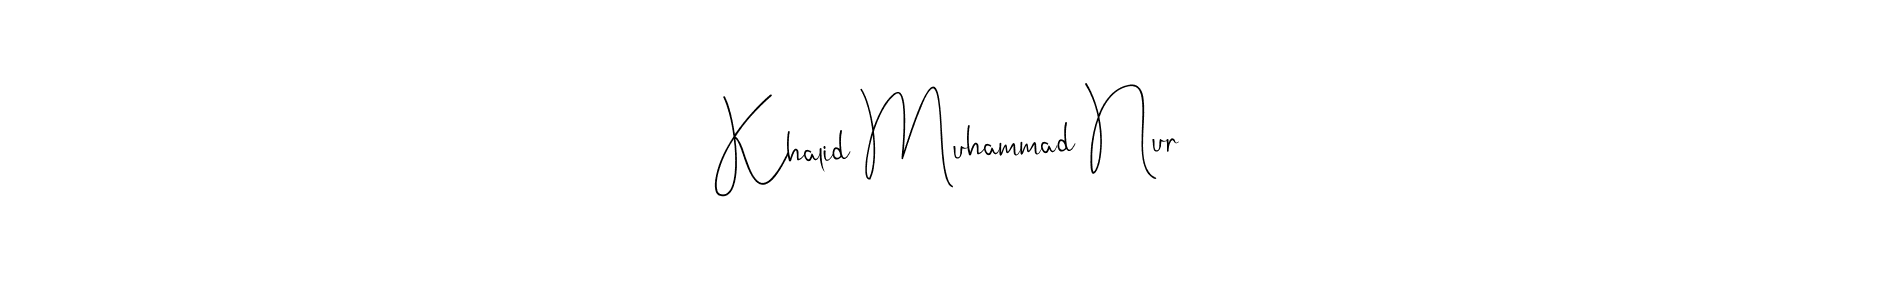 Khalid Muhammad Nur